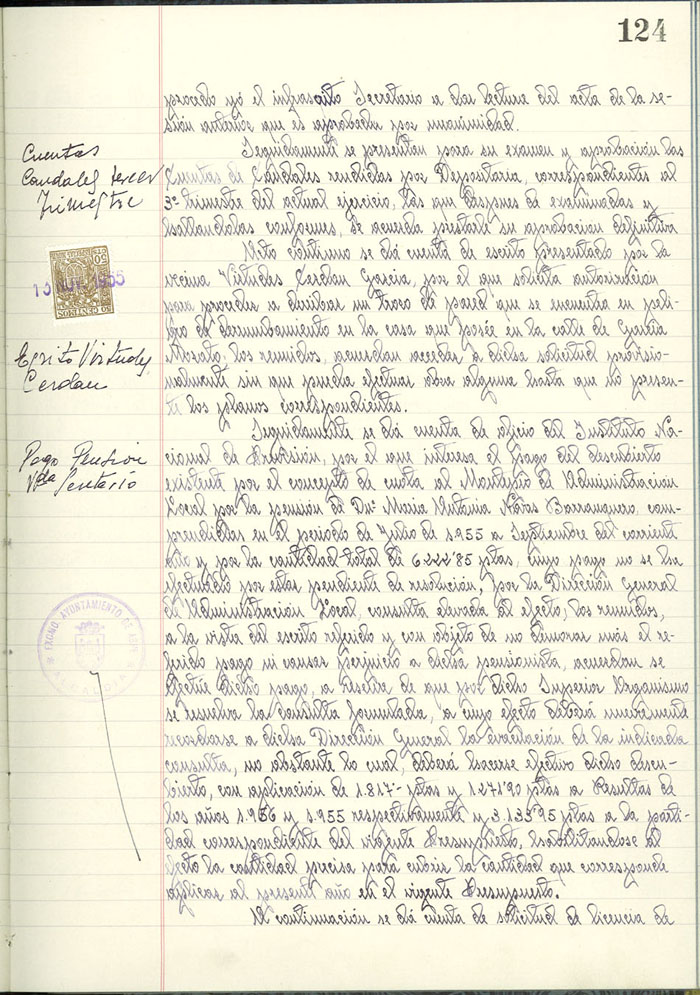 124
procedo yó el infrascrito Secretario a dar lectura del acta de la se-
sión anterior que es aprobada por unanimidad.
Cuentas
Caudales tercer
Trimestre
Seguidamente se presentan para su examen y aprobación las
Cuentas de Caudales rendidas por Depositaria, correspondientes al
3º trimestre del actual ejercicio, las que despues de examinadas y
hallandolas conformes, se acuerda prestarle su aprobación definitiva
50 CENTIMOS
50 CTS
Acto continuo se dá cuenta de escrito presentado por la
vecina Virtudes Cerdan Garcia, por el que solicita autorización
para proceder a derribar un trozo de pared que se encuentra en peli-
gro de derrumbamiento en la casa que posée en la calle de Garcia
Escrito Virtudes
Cerdan
Morato, los reunidos, acuerdan acceder a dicha solicitud provisio-
nalmente sin que pueda efectuar obra alguna hasta que no presen-
te los planos correspondientes.
Pago Pension
Vda
Seguidamente se dá cuenta de oficio del Instituto Na-
cional de Previsión, por el que interesa el pago del descubierto
existente por el concepto de cuota al Montepio de Administración
Local por la pensión de Dña Maria Antonia Navas Barranquero, com-
prendidas en el periodo de Julio de 1.955 a Septiembre del corriente
año y por la cantidad total de 6.222'85 ptas, cuyo pago no se ha
efectuado por estar pendiente de resolución, por la Dirección General
de Administración Local, consulta elevada al efecto, los reunidos,
EXCMO AYUNTAMIENTO DE
ALCALDIA
a la vista del escrito referido y con objeto de no demorar más el re-
ferido pago ni causar perjuicio a dicha pensionista, acuerdan se
efectúe dicho pago, a reserva de que por dicho Superior Organismo
se resuelva la consulta formulada, a cuyo efecto deberá nuevamente
recordarse a dicha Dirección General la evacuación de la indicada
consulta, no obstante lo cual, deberá hacerse efectivo dicho descu-
bierto, con aplicación de 1.817- ptas y 1.271'90 ptas a Resultas de
los años 1.956 y 1.955 respectivamente y 3.133'95 ptas a la parti-
da correspondiente del vigente Presupuesto, habilitandose al
efecto la cantidad precisa para cubrir la cantidad que corresponde
aplicar al presente año en el vigente Presupuesto.
A continuación se dá cuenta de solicitud de licencia de